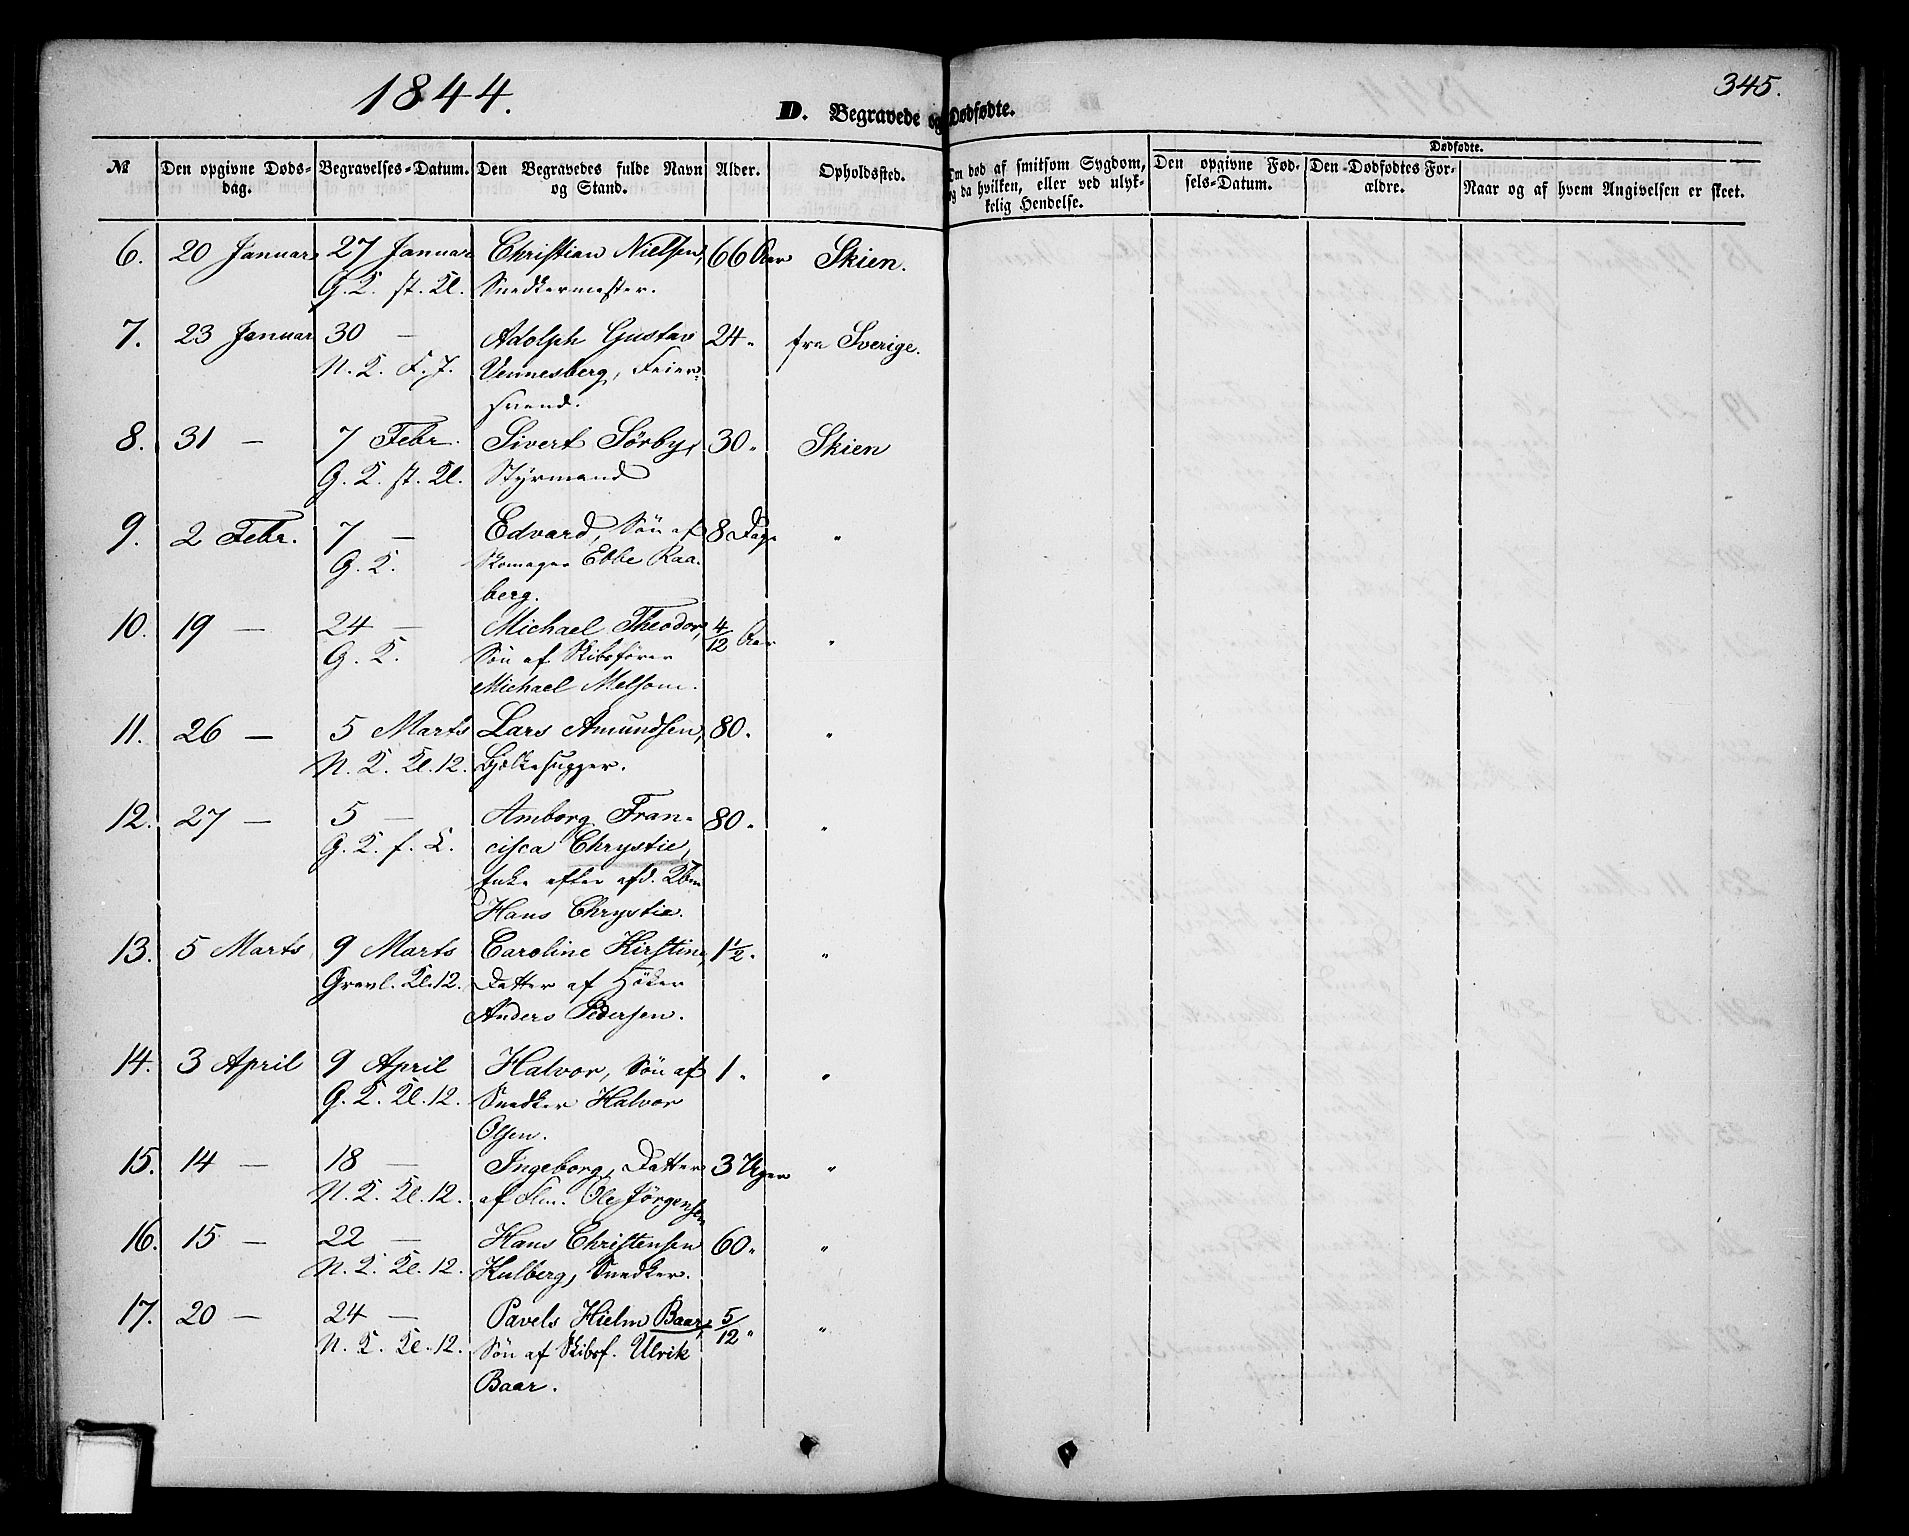 1844.
345.
D. Begravede og Dødfødte.
№ Den opgivne Døds-dag. Begravelses-Datum. Den Begravedes fulde Navn og Stand. Alder. Opholdssted. Om død af smitsom Sygdom, og da hvilken, eller ved ulyk-kelig Hendelse. Den opgivne Fød-sels-Datum. Den Dødfødtes For-ældre. Dødfødte. Naar og af hvem Angivelsen er skeet.
6. 20 Januar 27 Januar Christian Nielsen, 66 Aar Skien.
G. K. st. Kl. Snedkermester.
7. 23 Januar 30 — Adolph Gustav 24 " fra Sverige.
N. K. F. J. Vennesberg, Feier-
svend.
8. 31 — 7 Febr. Sivert Sörby, 30 " Skien
G. K. st. Kl. Styrmand
9. 2 Febr. 7 — Edvard, Sön af 8 Dage "
G. K. Skomager Ebbe Raa-
berg.
10. 19 — 24 — Michael Theodor, 4/12 Aar "
G. K. Sön af Skibsfører
Michael Melsom.
11. 26 — 5 Marts Lars Amundsen, 80 " "
N. K. Kl. 12. Bjelkehugger.
12. 27 — 5 — Amborg Fran- 80 " "
G. K. f. L. cisca Chrystie,
Enke efter afd. Kbm
Hans Chrystie.
13. 5 Marts 9 Marts Caroline Kirstine, 1½ " "
Gravl. Kl. 12. Datter af Höker
Anders Pedersen.
14. 3 April 9 April Halvor, Sön af 1 " "
G. K. Kl. 12. Snedker Halvor
Olsen.
15. 14 — 18 — Ingeborg, Datter 3 Uger "
N. K. Kl. 12. af Ole Jörgensen
16. 15 — 22 — Hans Christensen 60 " "
N. K. Kl. 12. Kulberg, Snedker.
17. 20 — 24 — Pavels Hielm Baar, 5/12 " "
N. K. Kl. 12. Sön af Skibsf. Ulrik
Baar.